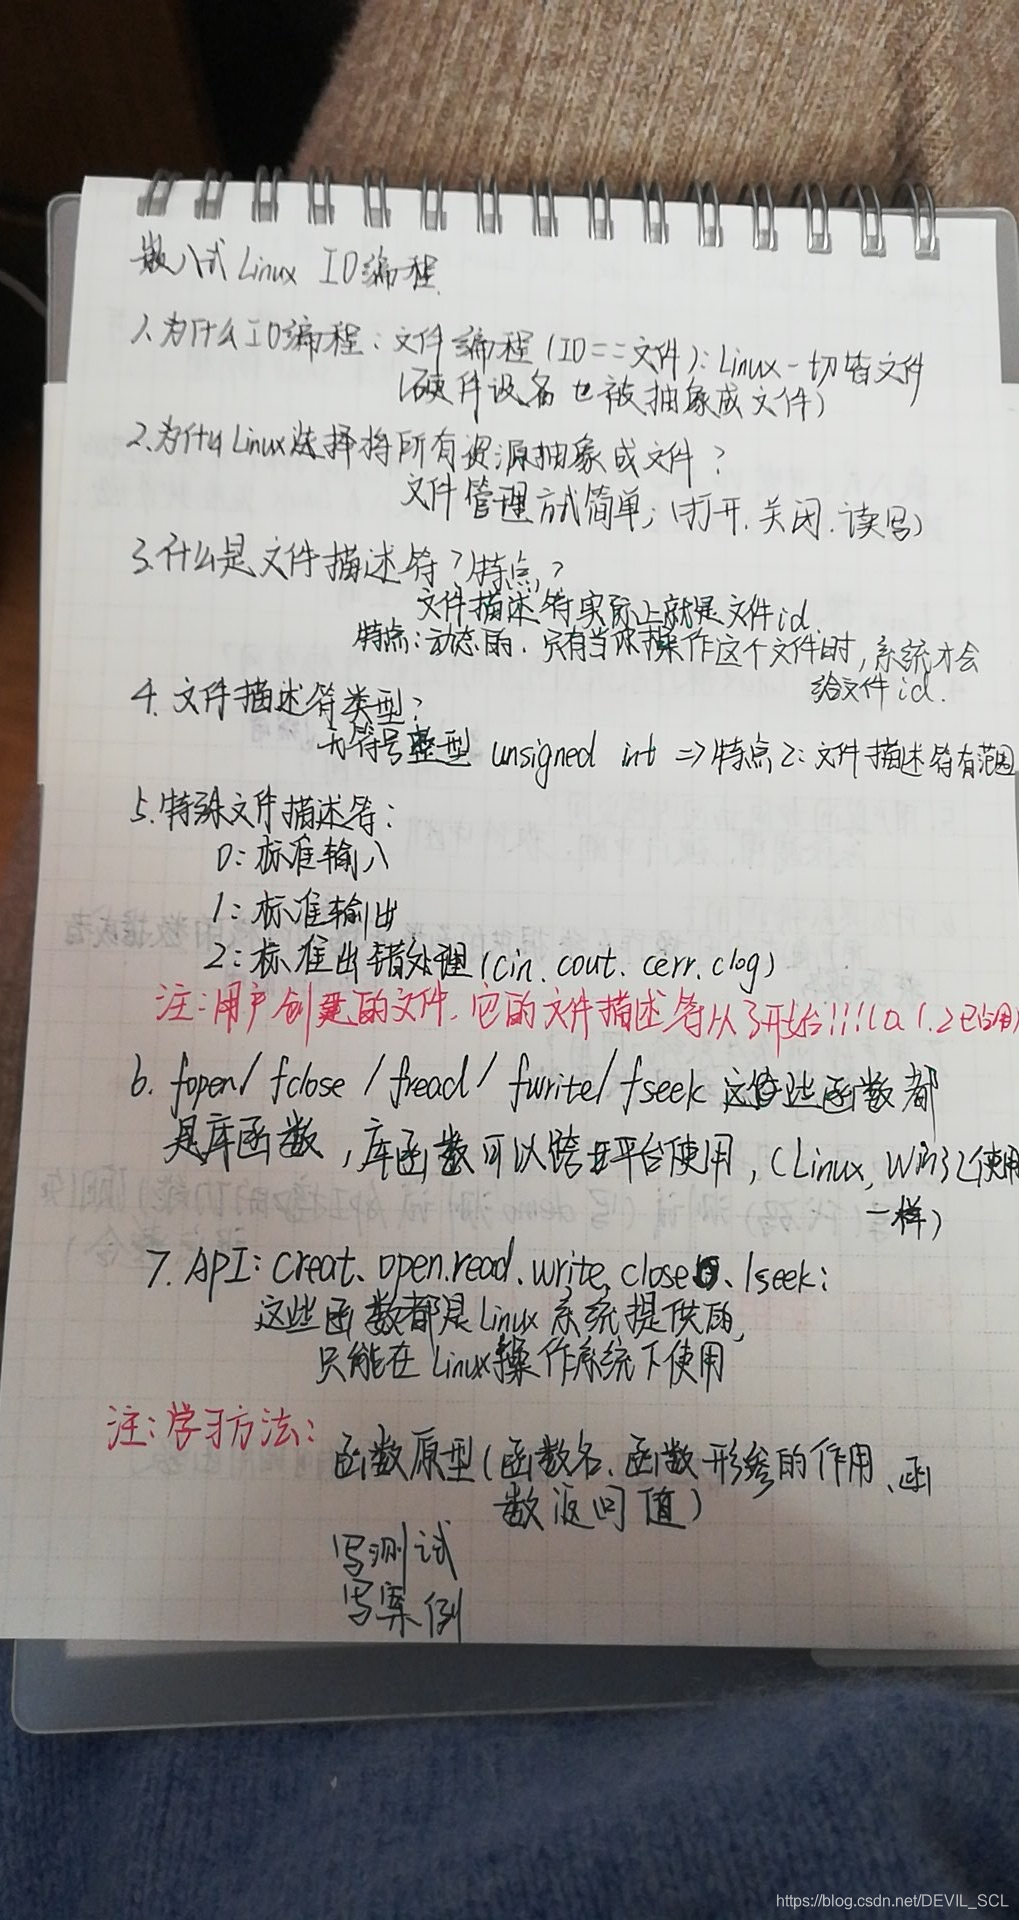 嵌入式Linux IO编程
1.为什么IO编程:文件编程(IO==文件):Linux一切皆文件
(硬件设备也被抽象成文件)
2.为什么Linux选择将所有资源抽象成文件?
文件管理方式简单;(打开.关闭.读写)
3.什么是文件描述符?特点?
文件描述符实际上就是文件id.
特点:动态的.只有当你操作这个文件时,系统才会
给文件id.
4.文件描述符类型?
无符号整型 unsigned int =>特点2:文件描述符有范围
5.特殊文件描述符:
0:标准输入
1:标准输出
2:标准出错处理(cin.cout.cerr.clog)
注:用户创建的文件,它的文件描述符从3开始!!!(0.1.2已占用)
6. fopen/ fclose / fread/ fwrite/ fseek 这些函数都
是库函数,库函数可以跨平台使用,(Linux,Win32使用
一样)
7. API: creat、open.read.write.close、lseek:
这些函数都是Linux系统提供的,
只能在Linux操作系统下使用
注:学习方法:
函数原型(函数名、函数形参的作用、函
数返回值)
写测试
写案例
https://blog.csdn.net/DEVIL_SCL